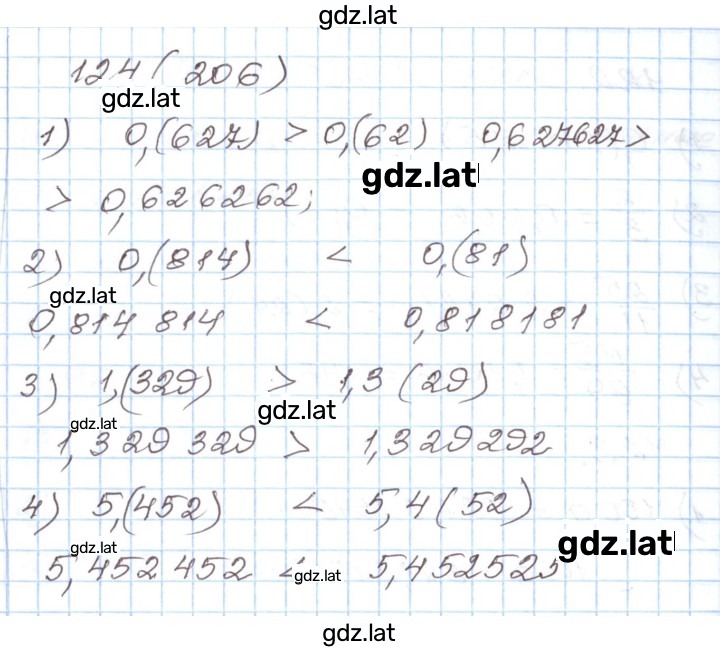 gdz.lat
124 ( 206 )
gdz.lat
1) 0,(627) > 0,(62) 0,627627 >
gdz.lat
> 0,626262;
2) 0,(814) < 0,(81)
gdz.lat
0,814 814 < 0,818181
3) 1,(329) > 1,3 (29)
gdz.lat
gdz.lat
1,329 329 > 1,329292
4) 5,(452) < 5,4 ( 52)
gdz.lat
gdz.lat
5,452 452 < 5,452525
gdz.lat
gdz.lat